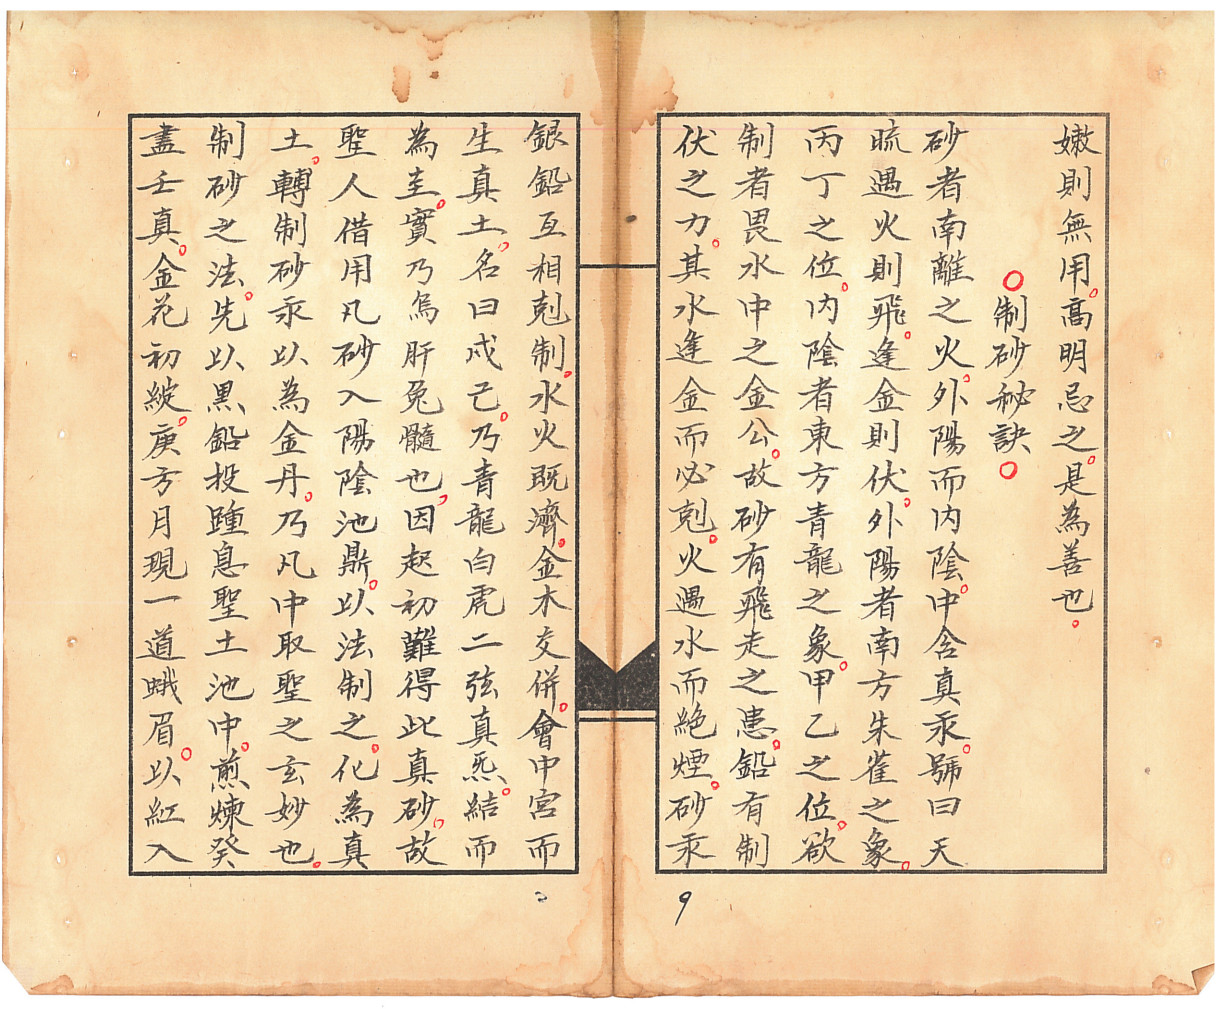 嫩則無用。高明忌之。是為善也。
〇制砂秘訣〇
砂者南離之火。外陽而内陰。中含真汞。號曰天
硫遇火則飛。逢金則伏。外陽者南方朱雀之象。
丙丁之位。内陰者東方青龍之象。甲乙之位。欲
制者畏水中之金公。故砂有飛走之患。鉛有制
伏之力。其水逢金而必剋。火遇水而絶煙。砂汞
銀鉛互相剋制。水火既濟。金木交併。會中宮而
生真土。名曰戊己。乃青龍白虎二弦真炁。結而
為圭。實乃烏肝兔髓也。因起初難得此真砂。故
聖人借用凡砂入陽陰池鼎。以法制之。化為真
土。轉制砂汞以為金丹。乃凡中取聖之玄妙也。
制砂之法。先以黒鉛投踵息聖土池中。煎煉癸
盡壬真。金花初綻。庚方月現一道蛾眉。以紅入
9